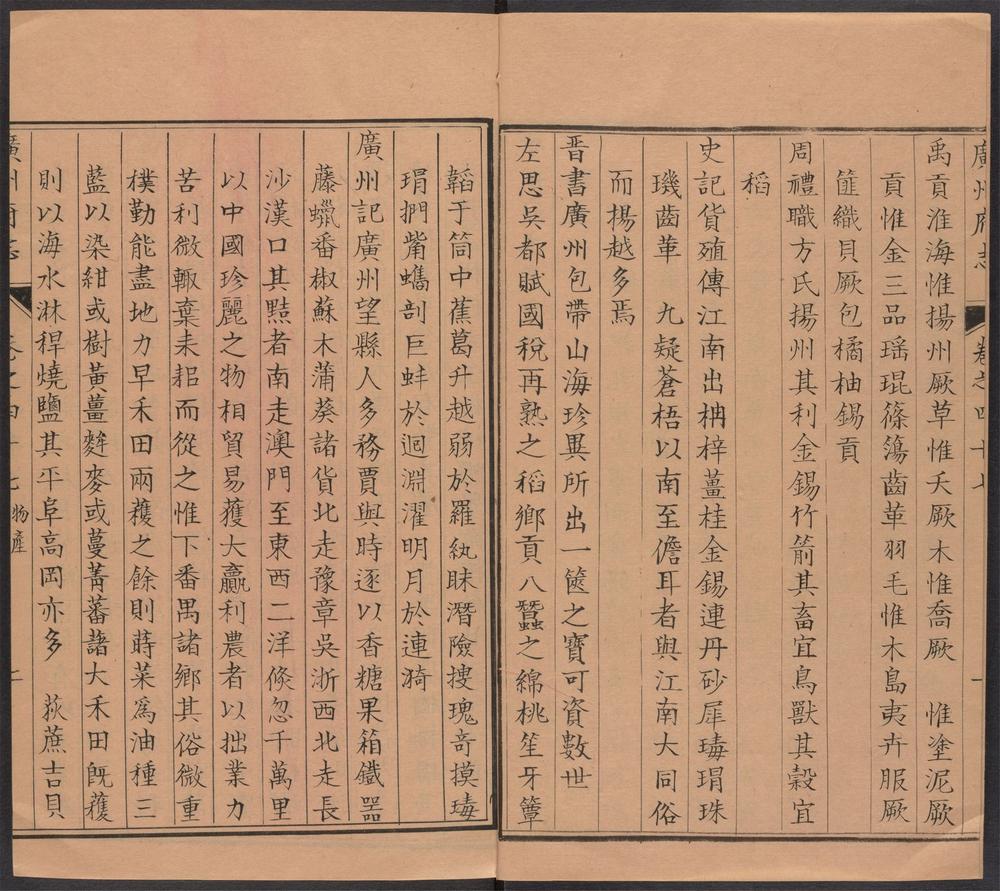 廣州府志 卷之四十七 一
禹貢淮海惟揚州厥草惟夭厥木惟喬厥 惟塗泥厥
貢惟金三品瑶琨篠簜齒革羽毛惟木島夷卉服厥
篚織貝厥包橘柚錫貢
周禮職方氏揚州其利金錫竹箭其畜宜鳥獸其穀宜
稻
史記貨殖傳江南出枏梓薑桂金錫連丹砂犀瑇瑁珠
璣齒革 九疑蒼梧以南至儋耳者與江南大同俗
而揚越多焉
晋書廣州包帶山海珍異所出一篋之寶可資數世
左思吳都賦國稅再熟之稻鄉貢八蠶之綿桃笙牙簟
韜于筒中蕉葛升越弱於羅紈眛潛險搜瑰奇摸瑇
瑁捫觜蠵剖巨蚌於迴淵濯明月於連漪
廣州記廣州望縣人多務賈與時逐以香糖果箱鐵器
藤蠟番椒蘇木蒲葵諸貨北走豫章吳浙西北走長
沙漢口其黠者南走澳門至東西二洋倏忽千萬里
以中國珍麗之物相貿易獲大贏利農者以拙業力
苦利微輒棄耒耜而從之惟下番禺諸鄉其俗微重
樸勤能盡地力早禾田兩穫之餘則蒔菜爲油種三
藍以染紺或樹黃薑䴰麥或蔓菁蕃藷大禾田旣穫
則以海水淋稈燒鹽其平阜高岡亦多 荻蔗吉貝
廣州府志 卷之四十七 物產 二